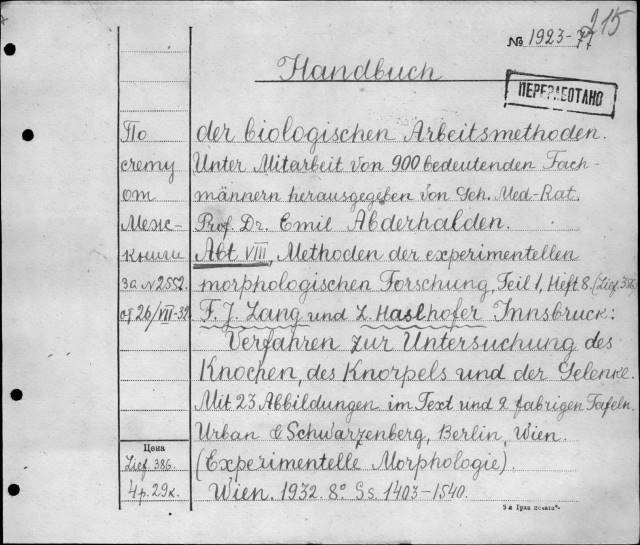 215
№ 1923-77
Handbuch
ПЕРЕРАБОТАНО
По
счету
от
Меж-
книги
за №2552.
от 26/VII-32
der biologischen Arbeitsmethoden.
Unter Mitarbeit von 900 bedeutenden Fach-
männern herausgegeben von Geh. Med-Rat.
Prof. Dr. Emil Abderhalden.
Abt VIII, Methoden der experimentellen
morphologischen Forschung, Teil 1, Heft 8. (Lief. 386)
F. J. Lang und L. Haslhofer Innsbruck:
Verfahren zur Untersuchung des
Knochen, des Knorpels und der Gelenke.
Mit 23 Abbildungen im Text und 2 fabrigen Tafeln.
Urban & Schwarzenberg, Berlin, Wien.
(Experimentelle Morphologie).
Wien. 1932. 8° Ss. 1403-1540.
Цена
Lief. 386.
4 р. 29к.